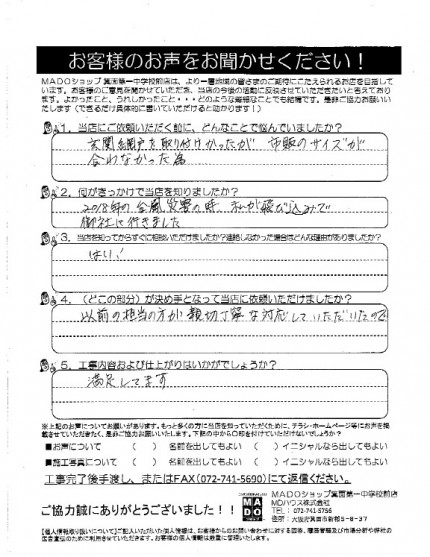 お客様のお声をお聞かせください！
MADOショップ箕面第一中学校前店は、より一層地域の皆さまのご期待にこたえられるお店を目指して
います。お客様のご意見を聞かせていただき、当店の今後の活動に反映させていただきたいと考えており
ます。よかったこと、うれしかったこと・・・どのような些細なことでも結構です。是非ご協力お願いい
たします（できるだけ具体的に書いていただけると助かります！）
1．当店にご依頼いただく前に、どんなことで悩んでいましたか？
玄関網戸を取り付けたかったが 市販のサイズが
合わなかった為
2．何がきっかけで当店を知りましたか？
2018年の台風災害の時、飛び込みで
御社に行きました
3．当店を知ってからすぐに相談いただけましたか？連絡しなかった場合はどんな理由がありましたか？
はい！
4．（どこの部分）が決め手となって当店に依頼いただけましたか？
以前の担当の方が親切丁寧な対応していただいたので
5．工事内容および仕上がりはいかがでしょうか？
満足してます
※上記のお声についてお願いがあります。もっと多くの方に当店を知っていただくために、チラシ・ホームページ等にお声を掲
載させていただきたく、是非ご協力お願いいたします。下記の中から○印を付けていただけないでしょうか？
■お声について （ ） 名前を出してもよい （ ）イニシャルなら出してもよい
■施工写真について （ ） 名前を出してもよい （ ）イニシャルなら出してもよい
工事完了後手渡し、またはFAX(072-741-5690)にて返信ください。
ご協力誠にありがとうございました！！
MADO
MADOショップ箕面第一中学校前店
MDハウス株式会社
TEL：072-741-5756
住所：大阪府箕面市新稲5-8-37